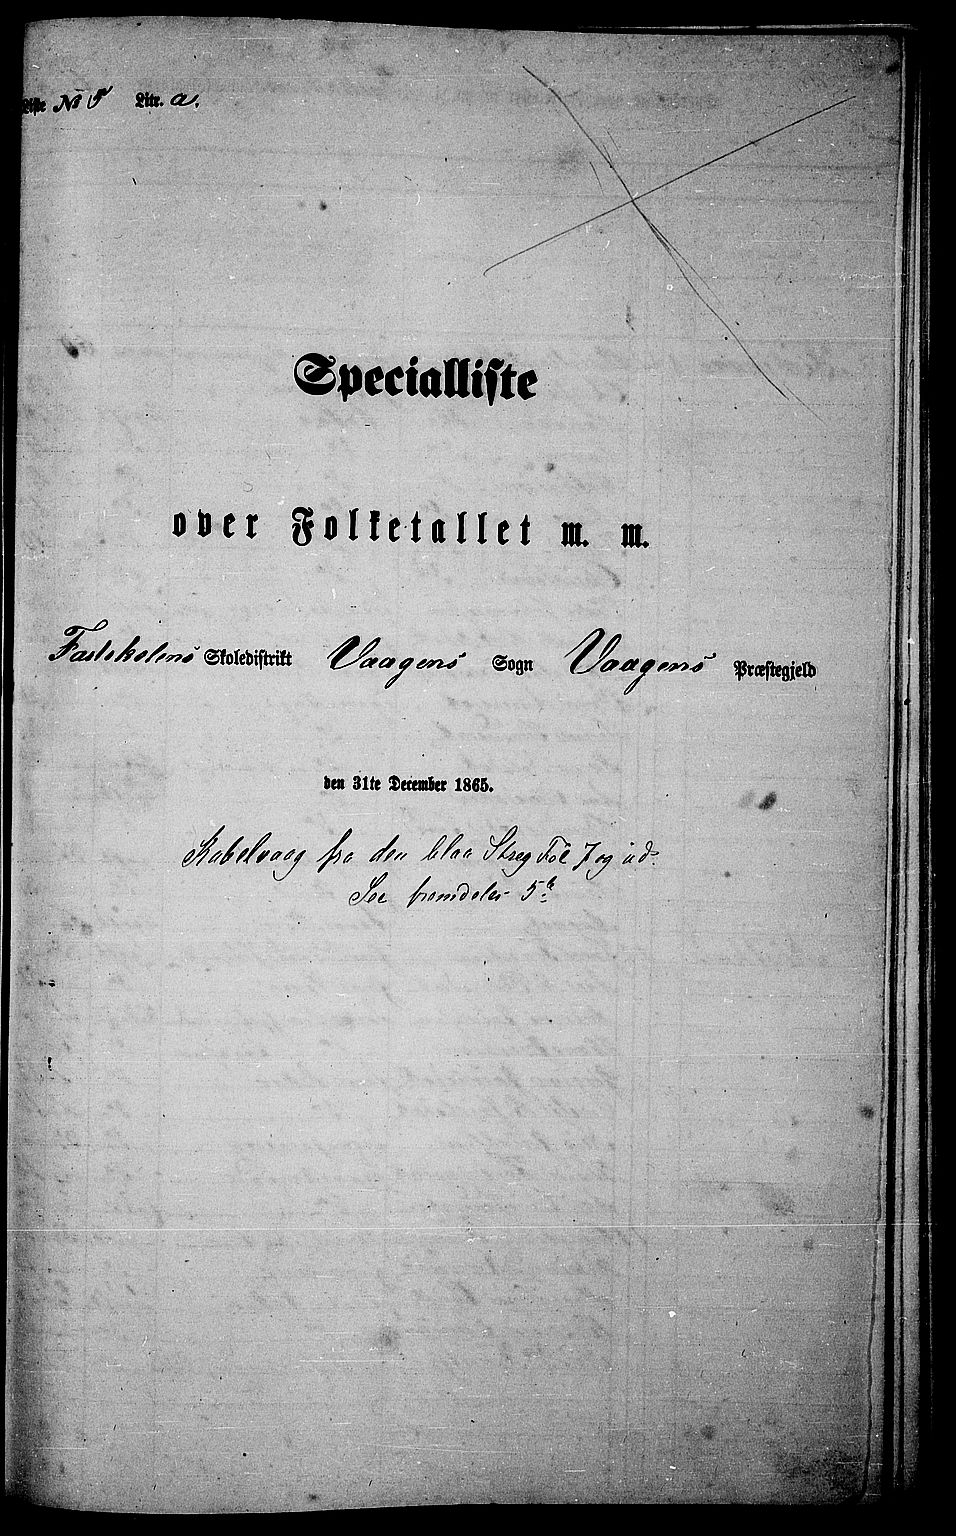 Liste No 5 Litr. a.
Specialliste
over Folketallet m. m.
Fastskolens Skoledistrikt Vaagens Sogn Vaagens Præstegjeld
den 31te December 1865.
Kabelvaag fra den blaa Streg Fol 7 og ud.
See fremdeles 5b